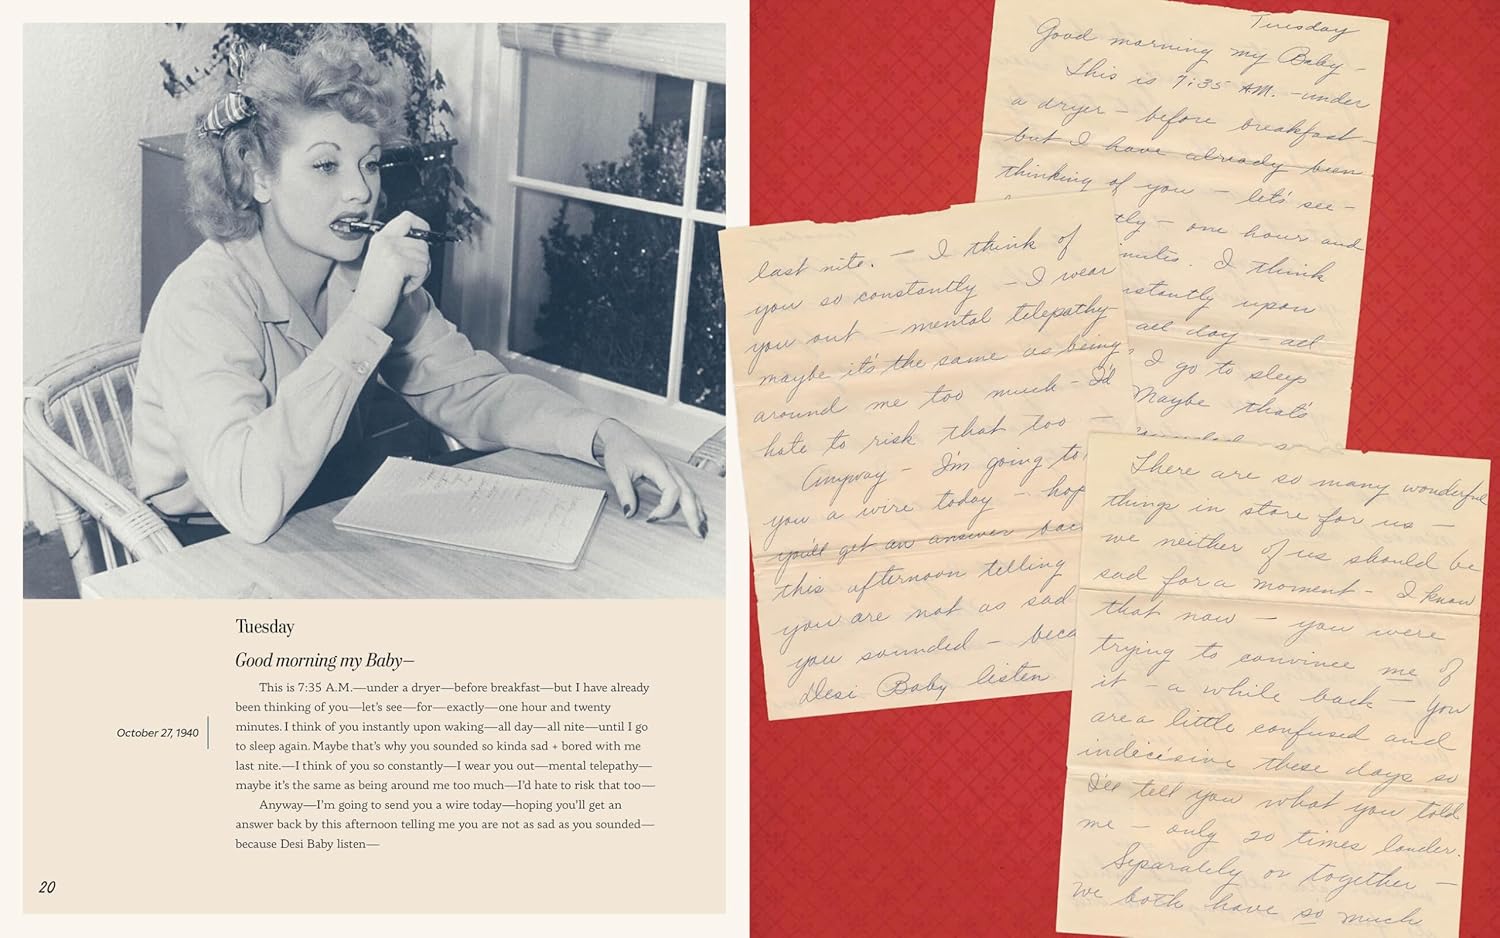 Tuesday
Good morning my Baby—
This is 7:35 A.M.—under a dryer—before breakfast—but I have already
been thinking of you—let's see—for—exactly—one hour and twenty
minutes. I think of you instantly upon waking—all day—all nite—until I go
to sleep again. Maybe that's why you sounded so kinda sad + bored with me
last nite.—I think of you so constantly—I wear you out—mental telepathy—
maybe it's the same as being around me too much—I'd hate to risk that too—
Anyway—I'm going to send you a wire today—hoping you'll get an
answer back by this afternoon telling me you are not as sad as you sounded—
because Desi Baby listen—
October 27, 1940
20
Tuesday
Good morning my Baby –
This is 7:35 AM. – under
a dryer – before breakfast –
but I have already been
thinking of you – let's see –
tly – one hour and
nutes. I think
nstantly upon
all day – all
I go to sleep
Maybe that's
last nite. – I think of
you so constantly – I wear
you out – mental telepathy –
maybe it's the same as being
around me too much – I'd
hate to risk that too –
Anyway – I'm going to
you a wire today – hop
you'll get an answer bac
this afternoon telling
you are not as sad
you sounded – beca
Desi Baby listen
There are so many wonderful
things in store for us –
we neither of us should be
sad for a moment – I know
that now – you were
trying to convince me of
it – a while back – You
are a little confused and
indecisive these days so
I'll tell you what you told
me – only 20 times louder.
Separately or together –
we both have so much